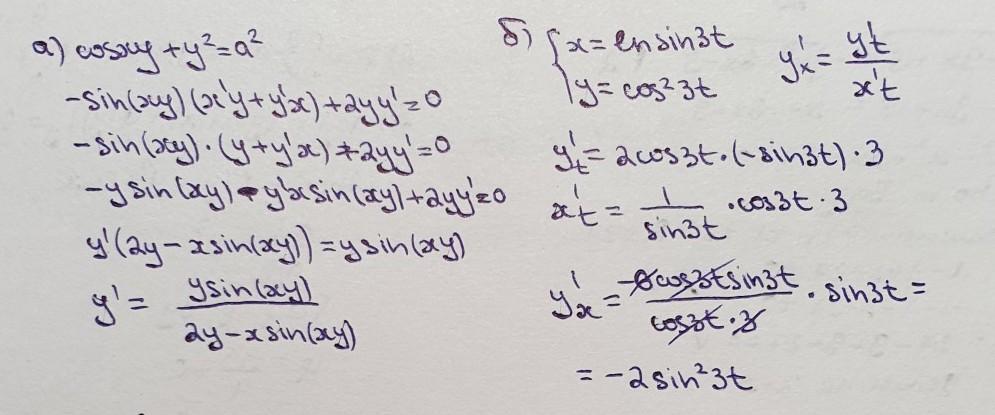 а) cosxy + y² = a²
-sin(xy) (x'y + y'x) + 2yy' = 0
-sin(xy) · (y + y'x) + 2yy' = 0
-y sin(xy) - y'x sin(xy) + 2yy' = 0
y'(2y - x sin(xy)) = y sin(xy)
y' = y sin(xy) / (2y - x sin(xy))
б) { x = ln sin3t
y = cos² 3t
y'x = y't / x't
y't = 2cos3t · (-sin3t) · 3
x't = 1/sin3t · cos3t · 3
y'x = -6cos3t sin3t / (cos3t · 3) · sin3t =
= -2 sin² 3t